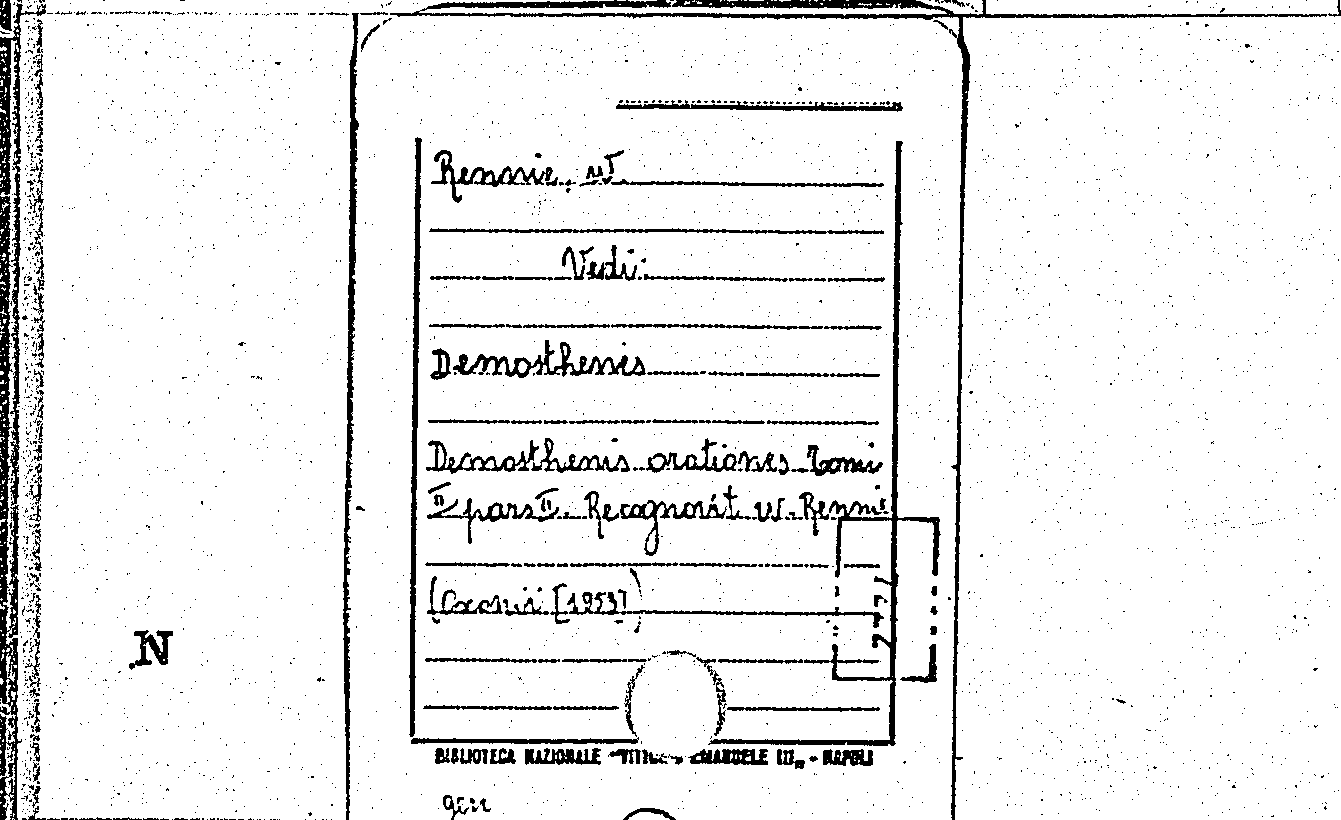 Rennie, W.
Vedi:
Demosthenis
Demosthenis orationes Tomi
II pars II. Recognovit W. Rennie
(Oxonii [1953])
N
BIBLIOTECA NAZIONALE "VITTORIO EMANUELE III" - NAPOLI